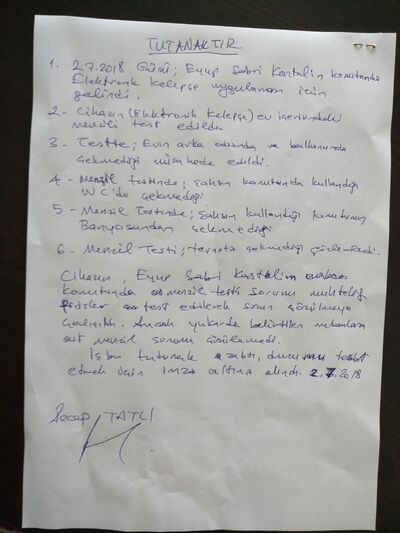 TUTANAKTIR
1. 2.7.2018 Günü; Eyup Sabri Kartal'ın konutunda
Elektronik Kelepçe uygulaması için
gelindi.
2- Cihazın (Elektronik Kelepçe) ev içerisindeki
menzili test edildi.
3- Testte; Evin arka odasında ve balkonunda
çekmediği müşahede edildi.
4- Menzil testinde; şahsın konutunda kullandığı
WC'de çekmediği
5- Menzil Testinde; şahsın kullandığı konutunun
Banyosundan çekmediği
6- Menzil Testi; terasta çekmediği gözlemlendi.
Cihazın, Eyup Sabri Kartal'ın
konutunda menzil testi sorunu muhtelif
prizler test edilerek sorun çözülmeye
çalışıldı. Ancak yukarda belirtilen mekanlara
ait menzil sorunu çözülemedi.
İşbu tutanak durumun tesbit
etmek için imza altına alındı. 2.7.2018
Recep TATLI